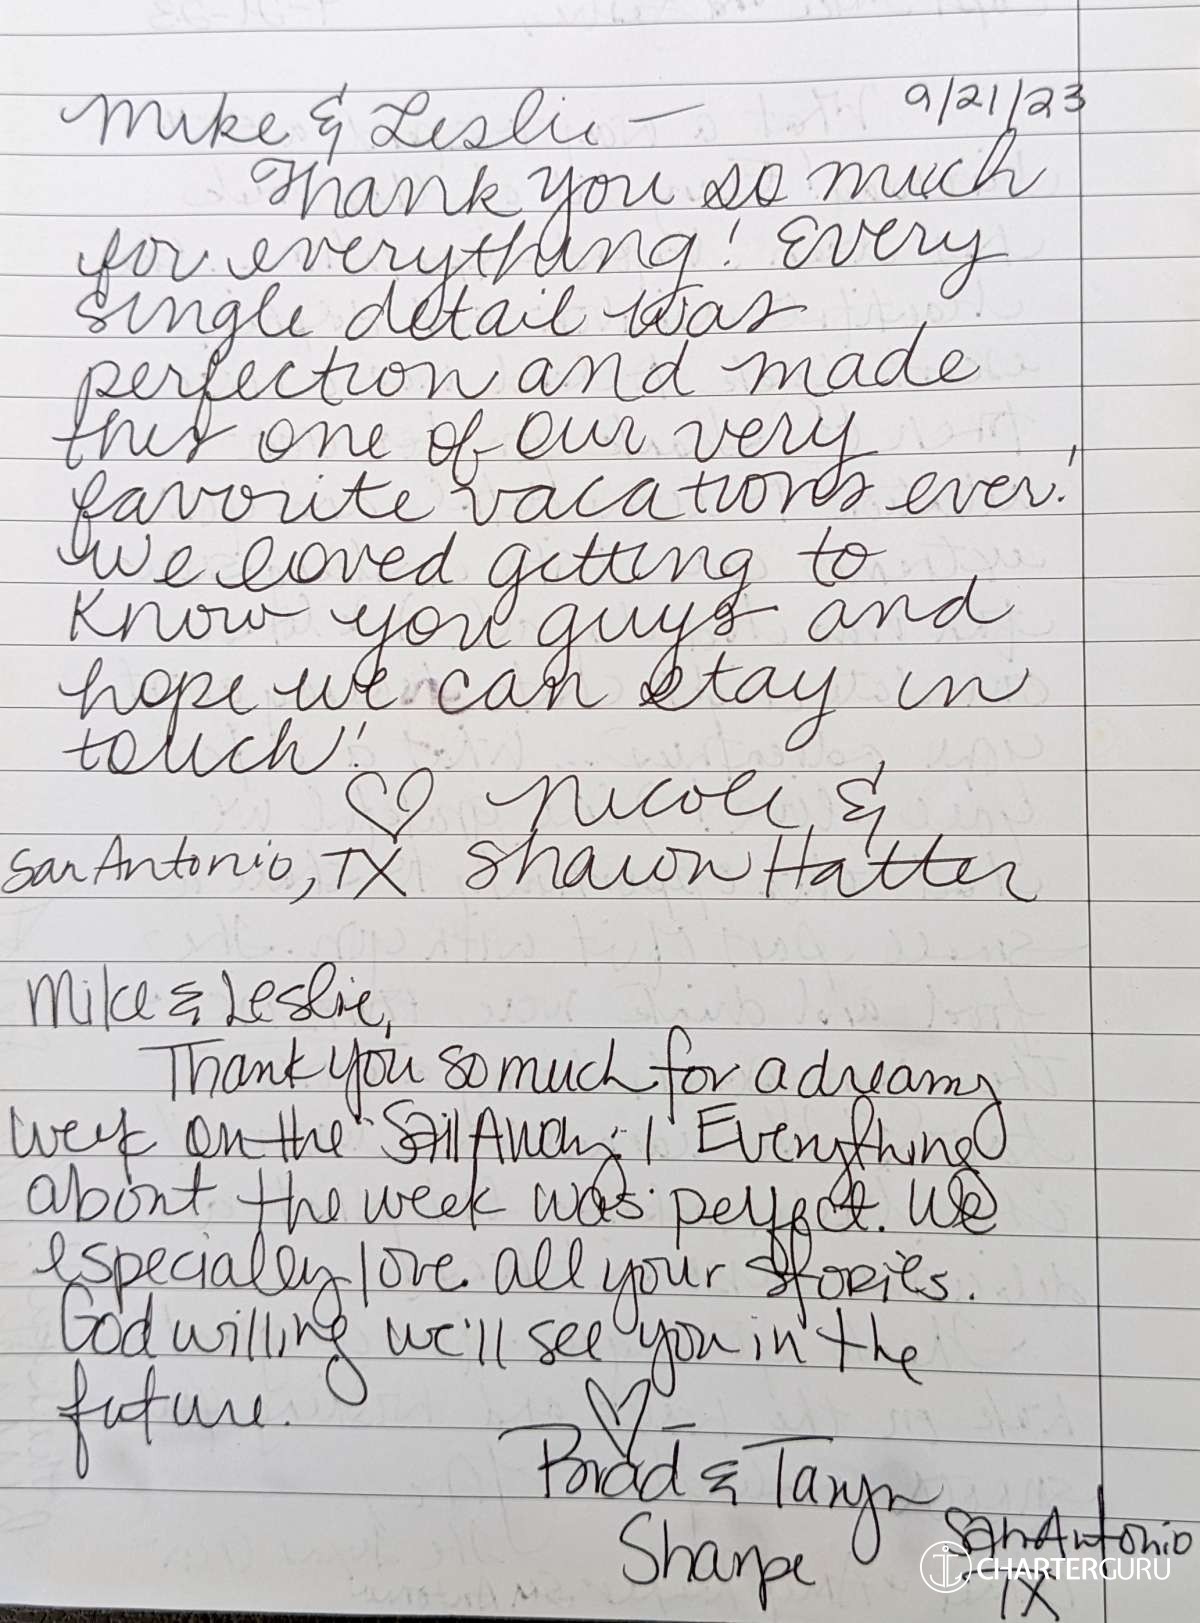 9/21/23
Mike & Leslie —
Thank you so much
for everything! Every
single detail was
perfection and made
this one of our very
favorite vacations ever!
We loved getting to
know you guys and
hope we can stay in
touch!
♡ Nicole &
San Antonio, TX Shawn Hatter
Mike & Leslie,
Thank you so much for a dreamy
week on the Sail Away! Everything
about the week was perfect. We
especially love all your stories.
God willing we'll see you in the
future.
♡ —
Brad & Taryn
Sharpe San Antonio
TX
CHARTERGURU